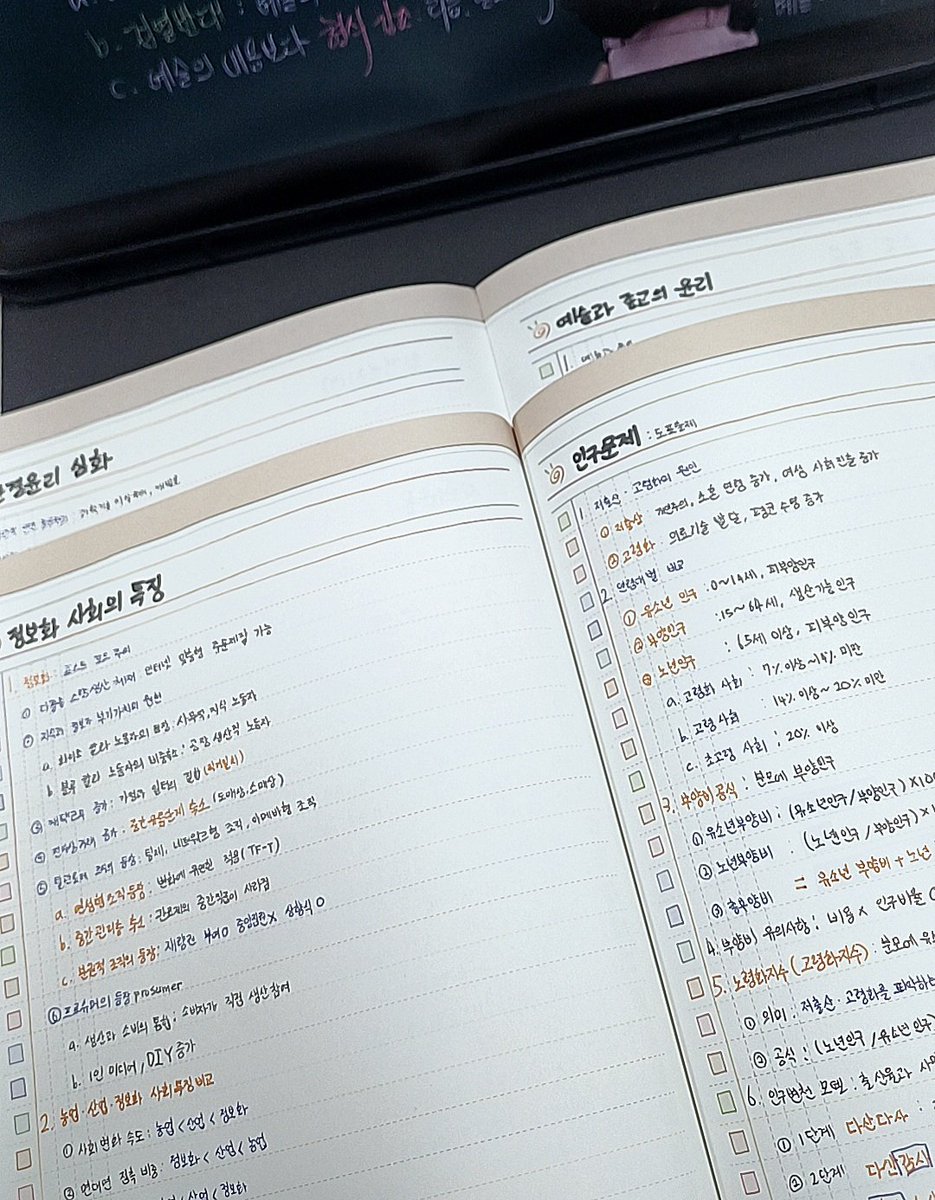 b. 검열반대 : 예술
c. 예술의 내용보다 형식 강조
예술과 종교의 윤리
1.
환경윤리 심화
인구문제 : 도표문제
1. 저출산·고령화의 원인
① 저출산 초혼 연령 증가, 여성 사회진출 증가
② 고령화 의료기술 발달, 평균 수명 증가
2. 연령대별 비교
① 유소년 인구 : 0~14세, 피부양인구
② 부양인구 : 15~64세, 생산가능인구
③ 노년인구 : 65세 이상, 피부양인구
a. 고령화 사회 : 7% 이상~14% 미만
b. 고령 사회 14% 이상~20% 미만
c. 초고령 사회 : 20% 이상
3. 부양비 공식 : 분모에 부양인구
① 유소년부양비 : (유소년인구/부양인구)×100
② 노년부양비 : (노년인구/부양인구)×1
③ 총부양비 = 유소년 부양비 + 노년
4. 부양비 유의사항 : 비율 × 인구비율 O
5. 노령화지수(고령화지수) : 분모에 유소
① 의미 : 저출산·고령화를 파악하는
② 공식 : (노년인구/유소년인구)
6. 인구변천 모델 : 출산율과 사
① 1단계 다산다사 :
② 2단계 다산감사
정보화 사회의 특징
1. 정보화 : 포스트 포드 주의
① 다품종 소량생산 체제 인터넷 맞춤형 주문제작 가능
② 지식과 정보가 부가가치의 원천
a. 화이트 칼라 노동자의 : 사무직, 지식 노동자
b. 블루 칼라 노동자의 비중축소 : 공장 생산직 노동자
③ 재택근무 증가 : 가정과 일터의 결합(직거일치)
④ 전자상거래 증가 : 중간유통단계 축소 (도매상, 소매상)
⑤ 탈관료제 조직의 등장 : 팀제, 네트워크형 조직, 아메바형 조직
a. 연성형조직등장 : 변화에 유연한 적응(TF-T)
b. 중간관리층 축소 : 관료제의 중간직급이 사라짐
c. 분권적 조직의 등장 : 재량권 부여O 중앙집권X 상향식O
⑥ 프로슈머의 등장 prosumer
a. 생산과 소비의 통합 : 소비자가 직접 생산 참여
b. 1인 미디어, DIY 증가
2. 농업·산업·정보화 사회특징비교
① 사회변화 속도 : 농업 < 산업 < 정보화
② 면대면 접촉 비중 : 정보화 < 산업 < 농업
< 산업 < 정보화